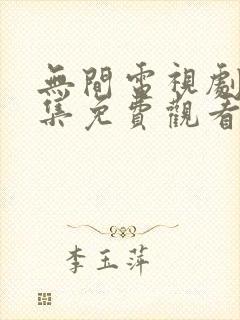 無間電視劇
集免費觀看
李玉萍